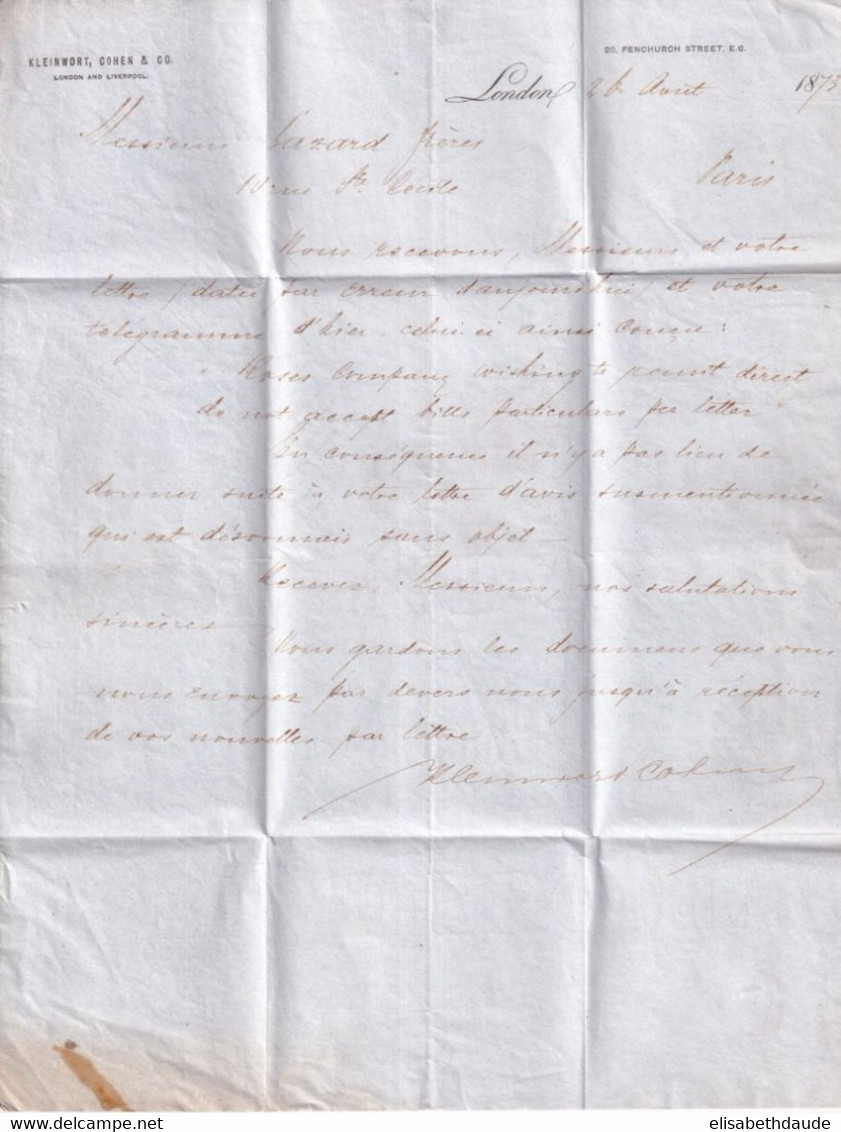 KLEINWORT, COHEN & CO.
LONDON AND LIVERPOOL.
20, FENCHURCH STREET, E.C.
London, 26 Août 1873
Messieurs Lazard frères
10 rue Ste Cécile
Paris
Nous recevons, Messieurs, et votre
lettre (datée par erreur d'aujourd'hui) et votre
télégramme d'hier celui ci ainsi conçu:
"Roses Company wishing to remit direct
do not accept bills particulars per letter"
En conséquence il n'y a pas lieu de
donner suite à votre lettre d'avis susmentionnée
qui est désormais sans objet -
Recevez, Messieurs, nos salutations
sincères
Nous gardons les documens que vous
nous envoyez par devers nous jusqu'à réception
de vos nouvelles par lettre
Kleinwort Cohen
elisabethdaude